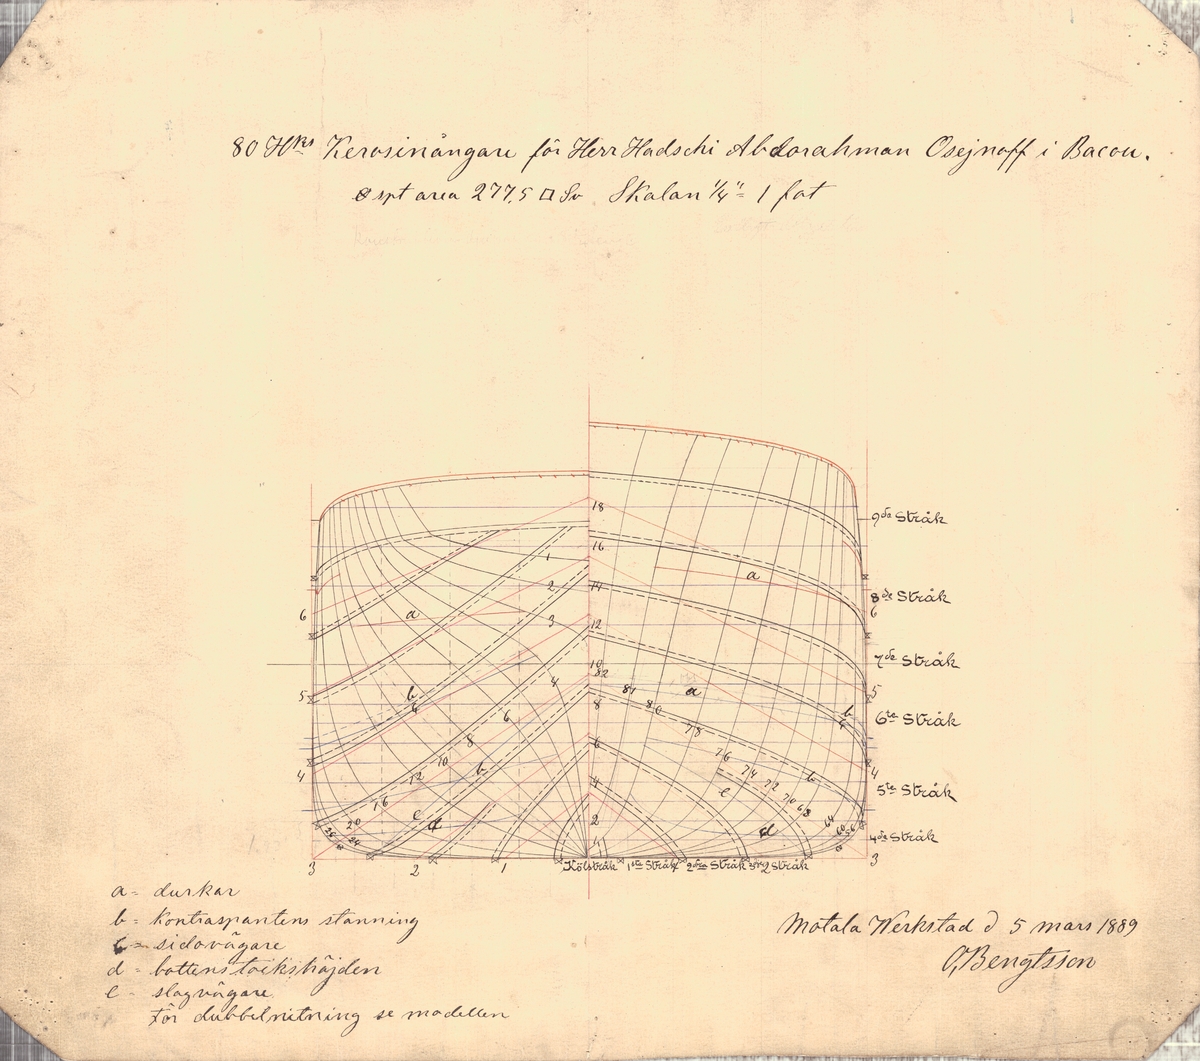 80 Hkrs Kerosinångare för Herr Hadschi Abdorahman Osejnoff i Bacou.
spt area 277,5 □ Sv Skalan 1/4" = 1 fot
18
16
14
12
10
82
8
6
4
2
1
2
3
4
6
8
10
12
16
20
24
a
b
c
b
e
d
6
5
4
3
2
1
a
a
81
80
78
76
74
72
70
68
64
60
56
e
d
b
b
6
5
4
3
9de Stråk
8de Stråk
7de Stråk
6te Stråk
5te Stråk
4de Stråk
Kölstråk 1sta Stråk 2dra Stråk 3dje Stråk
a = durkar
b = kontraspantens stanning
c = sidovägare
d = bottenstockshöjden
e = slagvägare
För dubbelnitning se modellen
Motala Werkstad d 5 mars 1889
C, Bengtsson